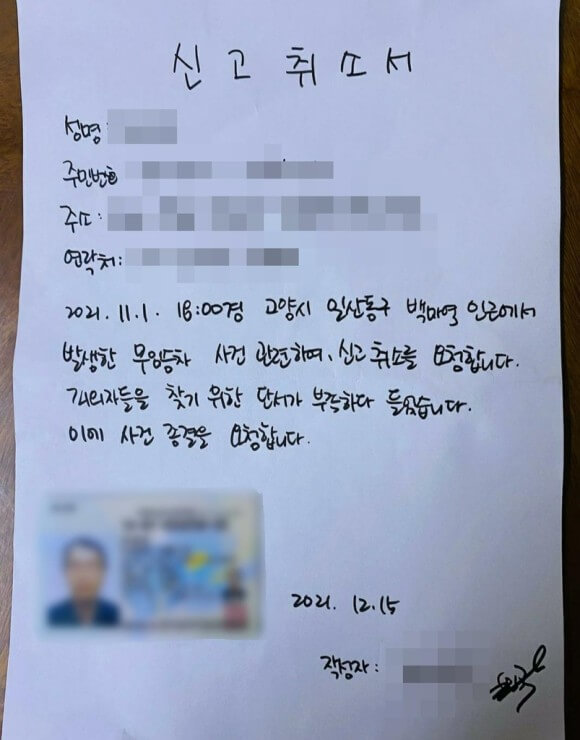 신고취소서
성명:
주민번호
주소:
연락처:
2021. 11. 1. 18:00경 고양시 일산동구 백마역 인근에서
발생한 무임승차 사건 관련하여, 신고 취소를 요청합니다.
피의자들을 찾기 위한 단서가 부족하다 들었습니다.
이에 사건 종결을 요청합니다.
2021. 12. 15
작성자: